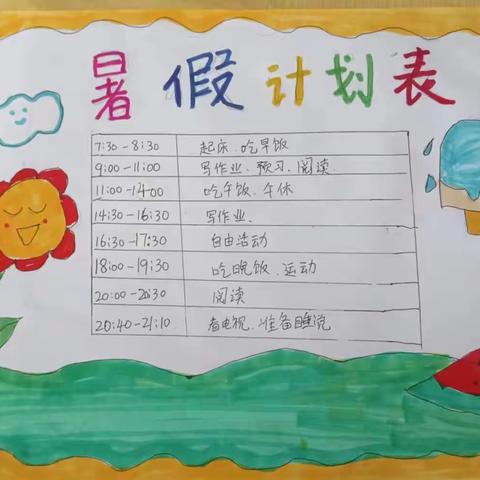 暑假计划表
7:30-8:30 起床、吃早饭
9:00-11:00 写作业、预习、阅读
11:00-14:00 吃午饭、午休
14:30-16:30 写作业、
16:30-17:30 自由活动
18:00-19:30 吃晚饭、运动
20:00-20:30 阅读
20:40-21:10 看电视、准备睡说